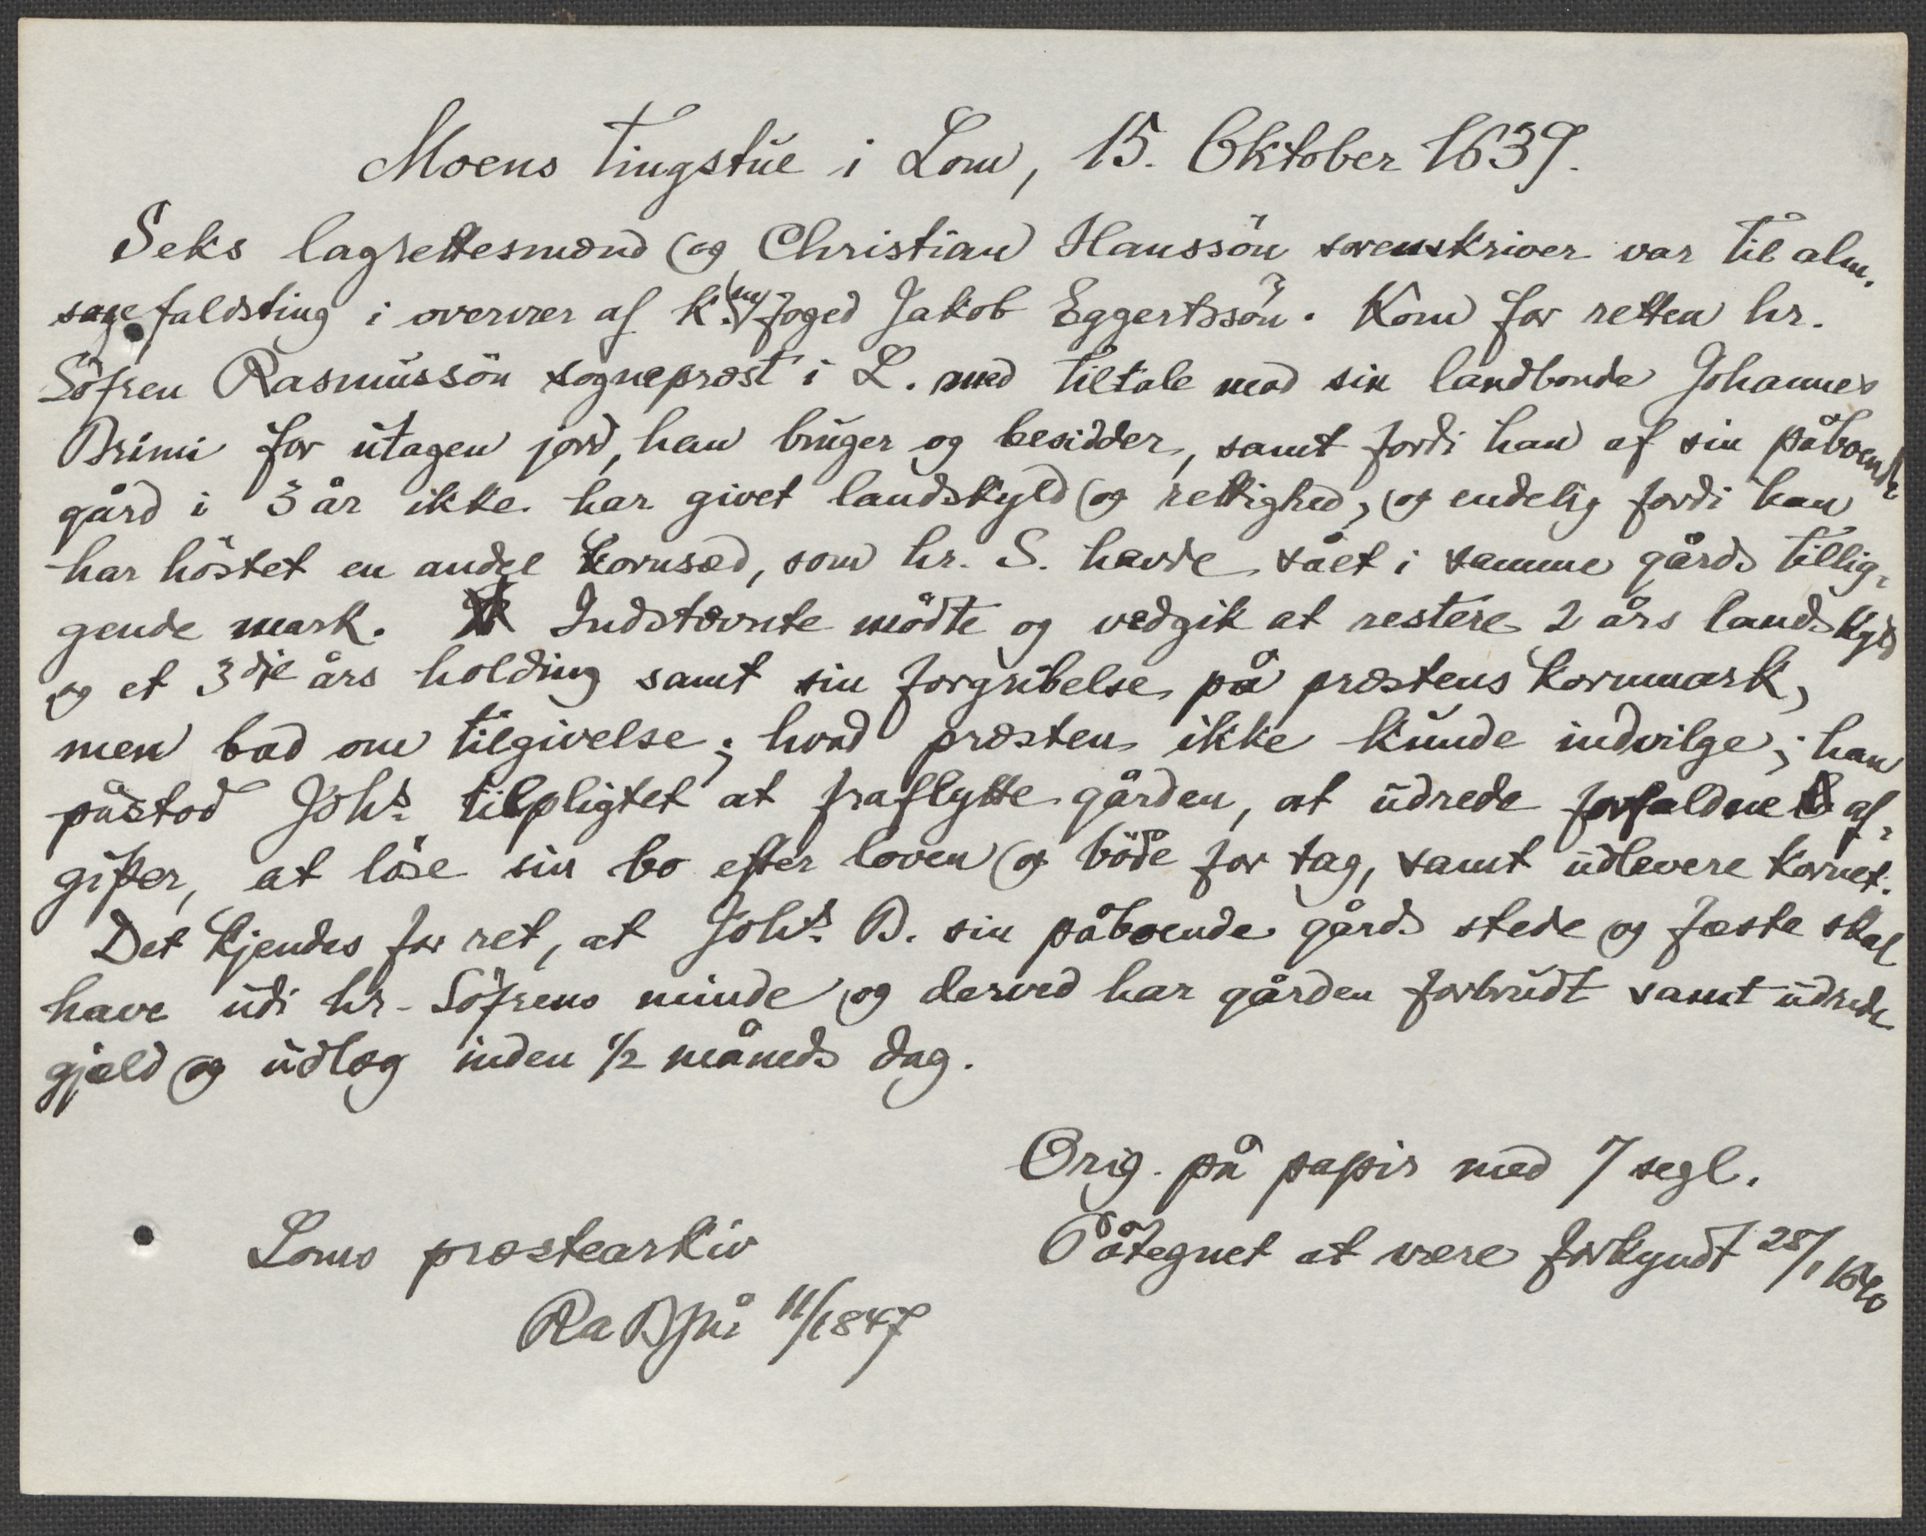 Moens tingstue i Lom, 15. Oktober 1639.
Seks lagrettesmænd og Christian Hanssön sorenskriver var til alm.
sagefaldsting i overvær af k. my foged Jakob Eggertssön. Kom for retten hr.
Söfren Rasmussön sognepræst i L. med tiltale mod sin landbonde Johannes
Brimi for utagen jord, han bruger og besidder, samt fordi han af sin påboende
gård i 3 år ikke har givet landskyld og rettighed, og endelig fordi han
har höstet en andel kornsæd, som hr. S. havde sået i samme gårds tillig-
gende mark. Indstævnte mödte og vedgik at restere 2 års landskyld
og et 3die års holding samt sin forgribelse på præstens kornmark,
men bad om tilgivelse; hvad præsten ikke kunde indvilge; han
påstod Johs. tilpligtet at fraflytte gården, at udrede forfaldne af-
gifter, at löse sin bo efter loven og böde for tag, samt udlevere kornet.
Det kjendes for ret, at Johs. B. sin påboende gårds stede og fæste skal
have udi hr. Söfrens minde og derved har gården forbrudt samt udrede
gjæld og udlæg inden 1/2 måneds dag.
Orig. på papir med 7 segl.
Påtegnet at være forkyndt 28/1 1640
Loms præstearkiv
Ra 11/1847